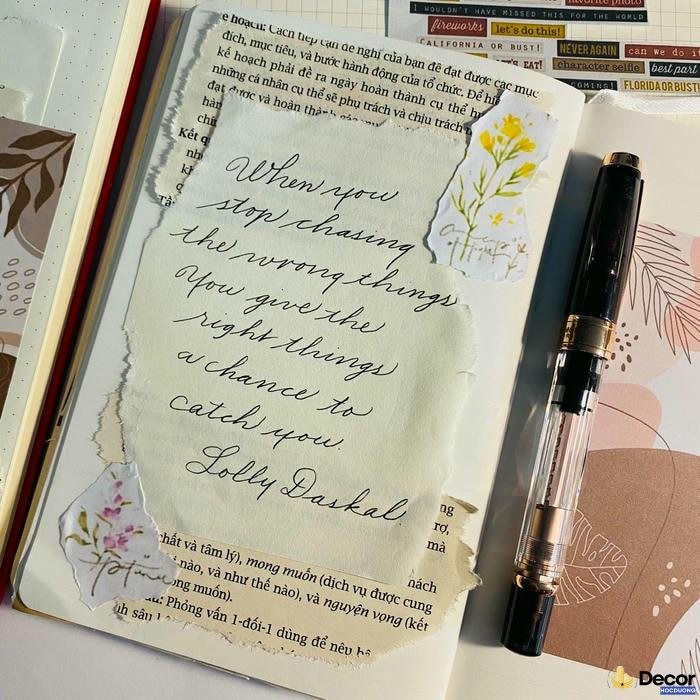 favorite photo
I WOULDN'T HAVE MISSED THIS FOR THE WORLD
fireworks let's do this!
CALIFORNIA OR BUST! NEVER AGAIN can we do it
EAT! character selfie best part
COMING! FLORIDA OR BUST!
hoạch: Cách tiếp cận đề nghị của bạn để đạt được các mục
đích, mục tiêu, và bước hành động của tổ chức. Để
kế hoạch phải đề ra ngày hoàn thành cụ thể
những cá nhân cụ thể sẽ phụ trách và chịu trách
được và hoàn thành
Kết
When you
stop chasing
the wrong things
You give the
right things
a chance to
catch you.
Lolly Daskal.
trợ,
mà
chất và tâm lý), mong muốn (dịch vụ được cung
nào, và như thế nào), và nguyện vọng (kết
muốn).
sâu Phỏng vấn 1-đối-1 dùng để
Decor
HOCDUONG